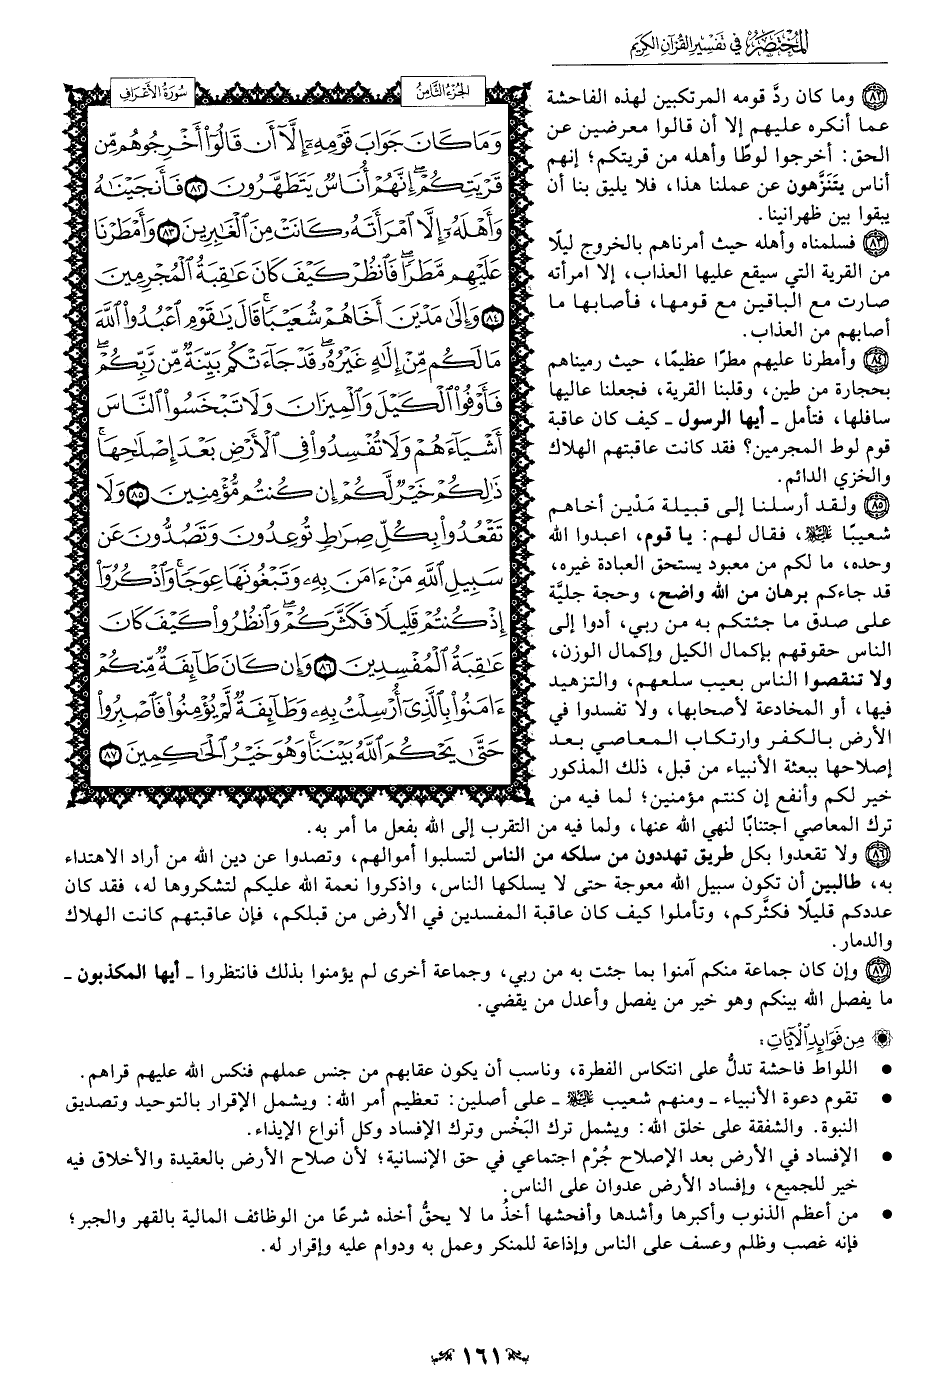 المختصر في تفسير القرآن الكريم
سورة الأعراف
الجزء الثامن
وَمَا كَانَ جَوَابَ قَوْمِهِۦٓ إِلَّآ أَن قَالُوٓا۟ أَخْرِجُوهُم مِّن
قَرْيَتِكُمْ ۖ إِنَّهُمْ أُنَاسٌ يَتَطَهَّرُونَ ٨٢ فَأَنجَيْنَـٰهُ
وَأَهْلَهُۥٓ إِلَّا ٱمْرَأَتَهُۥ كَانَتْ مِنَ ٱلْغَـٰبِرِينَ ٨٣ وَأَمْطَرْنَا
عَلَيْهِم مَّطَرًا ۖ فَٱنظُرْ كَيْفَ كَانَ عَـٰقِبَةُ ٱلْمُجْرِمِينَ
٨٤ وَإِلَىٰ مَدْيَنَ أَخَاهُمْ شُعَيْبًا ۗ قَالَ يَـٰقَوْمِ ٱعْبُدُوا۟ ٱللَّهَ
مَا لَكُم مِّنْ إِلَـٰهٍ غَيْرُهُۥ ۖ قَدْ جَآءَتْكُم بَيِّنَةٌ مِّن رَّبِّكُمْ ۖ
فَأَوْفُوا۟ ٱلْكَيْلَ وَٱلْمِيزَانَ وَلَا تَبْخَسُوا۟ ٱلنَّاسَ
أَشْيَآءَهُمْ وَلَا تُفْسِدُوا۟ فِى ٱلْأَرْضِ بَعْدَ إِصْلَـٰحِهَا ۚ
ذَٰلِكُمْ خَيْرٌ لَّكُمْ إِن كُنتُم مُّؤْمِنِينَ ٨٥ وَلَا
تَقْعُدُوا۟ بِكُلِّ صِرَٰطٍ تُوعِدُونَ وَتَصُدُّونَ عَن
سَبِيلِ ٱللَّهِ مَنْ ءَامَنَ بِهِۦ وَتَبْغُونَهَا عِوَجًا ۚ وَٱذْكُرُوٓا۟
إِذْ كُنتُمْ قَلِيلًا فَكَثَّرَكُمْ ۖ وَٱنظُرُوا۟ كَيْفَ كَانَ
عَـٰقِبَةُ ٱلْمُفْسِدِينَ ٨٦ وَإِن كَانَ طَآئِفَةٌ مِّنكُمْ
ءَامَنُوا۟ بِٱلَّذِىٓ أُرْسِلْتُ بِهِۦ وَطَآئِفَةٌ لَّمْ يُؤْمِنُوا۟ فَٱصْبِرُوا۟
حَتَّىٰ يَحْكُمَ ٱللَّهُ بَيْنَنَا ۚ وَهُوَ خَيْرُ ٱلْحَـٰكِمِينَ ٨٧
٨٢ وما كان ردَّ قومه المرتكبين لهذه الفاحشة
عما أنكره عليهم إلا أن قالوا معرضين عن
الحق: أخرجوا لوطًا وأهله من قريتكم؛ إنهم
أناس يتَنَزَّهون عن عملنا هذا، فلا يليق بنا أن
يبقوا بين ظهرانينا.
٨٣ فسلمناه وأهله حيث أمرناهم بالخروج ليلًا
من القرية التي سيقع عليها العذاب، إلا امرأته
صارت مع الباقين مع قومها، فأصابها ما
أصابهم من العذاب.
٨٤ وأمطرنا عليهم مطرًا عظيمًا، حيث رميناهم
بحجارة من طين، وقلبنا القرية، فجعلنا عاليها
سافلها، فتأمل ـ أيها الرسول ـ كيف كان عاقبة
قوم لوط المجرمين؟ فقد كانت عاقبتهم الهلاك
والخزي الدائم.
٨٥ ولقد أرسلنا إلى قبيلة مَدْين أخاهم
شعيبًا ﷺ، فقال لهم: يا قوم، اعبدوا الله
وحده، ما لكم من معبود يستحق العبادة غيره،
قد جاءكم برهان من الله واضح، وحجة جليَّة
على صدق ما جئتكم به من ربي، أدوا إلى
الناس حقوقهم بإكمال الكيل وإكمال الوزن،
ولا تنقصوا الناس بعيب سلعهم، والتزهيد
فيها، أو المخادعة لأصحابها، ولا تفسدوا في
الأرض بالكفر وارتكاب المعاصي بعد
إصلاحها ببعثة الأنبياء من قبل، ذلك المذكور
خير لكم وأنفع إن كنتم مؤمنين؛ لما فيه من
ترك المعاصي اجتنابًا لنهي الله عنها، ولما فيه من التقرب إلى الله بفعل ما أمر به.
٨٦ ولا تقعدوا بكل طريق تهددون من سلكه من الناس لتسلبوا أموالهم، وتصدوا عن دين الله من أراد الاهتداء
به، طالبين أن تكون سبيل الله معوجة حتى لا يسلكها الناس، واذكروا نعمة الله عليكم لتشكروها له، فقد كان
عددكم قليلًا فكثَّركم، وتأملوا كيف كان عاقبة المفسدين في الأرض من قبلكم، فإن عاقبتهم كانت الهلاك
والدمار.
٨٧ وإن كان جماعة منكم آمنوا بما جئت به من ربي، وجماعة أخرى لم يؤمنوا بذلك فانتظروا ـ أيها المكذبون ـ
ما يفصل الله بينكم وهو خير من يفصل وأعدل من يقضي.
مِن فَوَائِدِ الْآيَاتِ:
• اللواط فاحشة تدلُّ على انتكاس الفطرة، وناسب أن يكون عقابهم من جنس عملهم فنكس الله عليهم قراهم.
• تقوم دعوة الأنبياء ـ ومنهم شعيب ﷺ ـ على أصلين: تعظيم أمر الله: ويشمل الإقرار بالتوحيد وتصديق
النبوة. والشفقة على خلق الله: ويشمل ترك البَخْس وترك الإفساد وكل أنواع الإيذاء.
• الإفساد في الأرض بعد الإصلاح جُرْم اجتماعي في حق الإنسانية؛ لأن صلاح الأرض بالعقيدة والأخلاق فيه
خير للجميع، وإفساد الأرض عدوان على الناس.
• من أعظم الذنوب وأكبرها وأشدها وأفحشها أخذُ ما لا يحقُّ أخذه شرعًا من الوظائف المالية بالقهر والجبر؛
فإنه غصب وظلم وعسف على الناس وإذاعة للمنكر وعمل به ودوام عليه وإقرار له.
١٦١